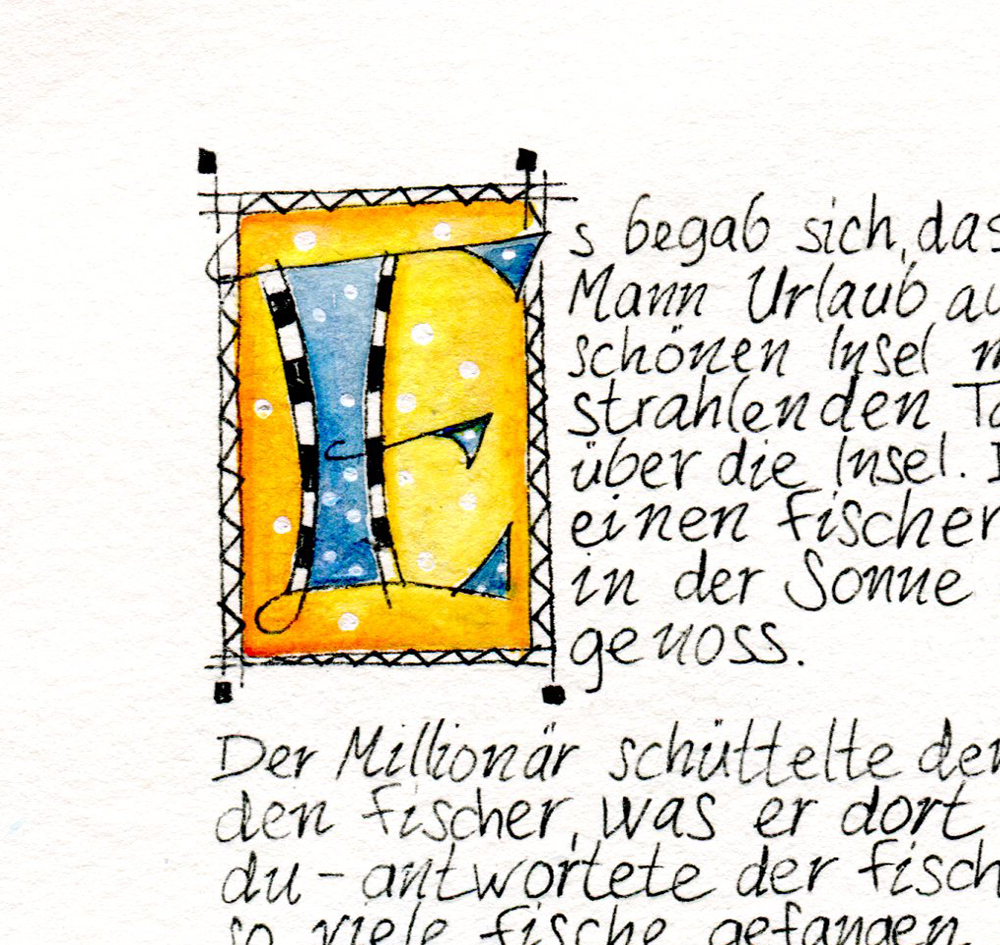 Es begab sich, das
Mann Urlaub au
schönen Insel m
strahlenden Ta
über die Insel.
einen Fischer
in der Sonne
genoss.
Der Millionär schüttelte den
den Fischer, was er dort
du - antwortete der Fisch
so viele Fische gefangen,